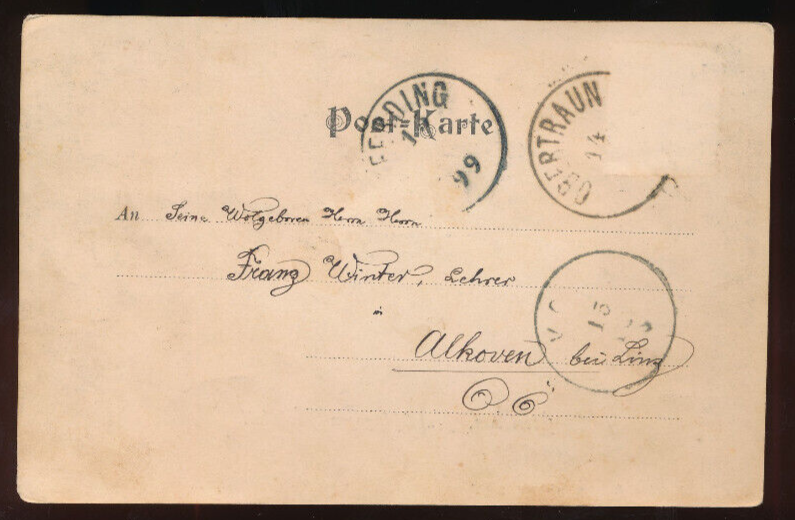 Post-Karte
FERDING
99
OBERTRAUN
14
An Seine Wolgeboren Herrn Herrn
Franz Winter, Lehrer
in
15
Alkoven bei Linz
O. Ö.